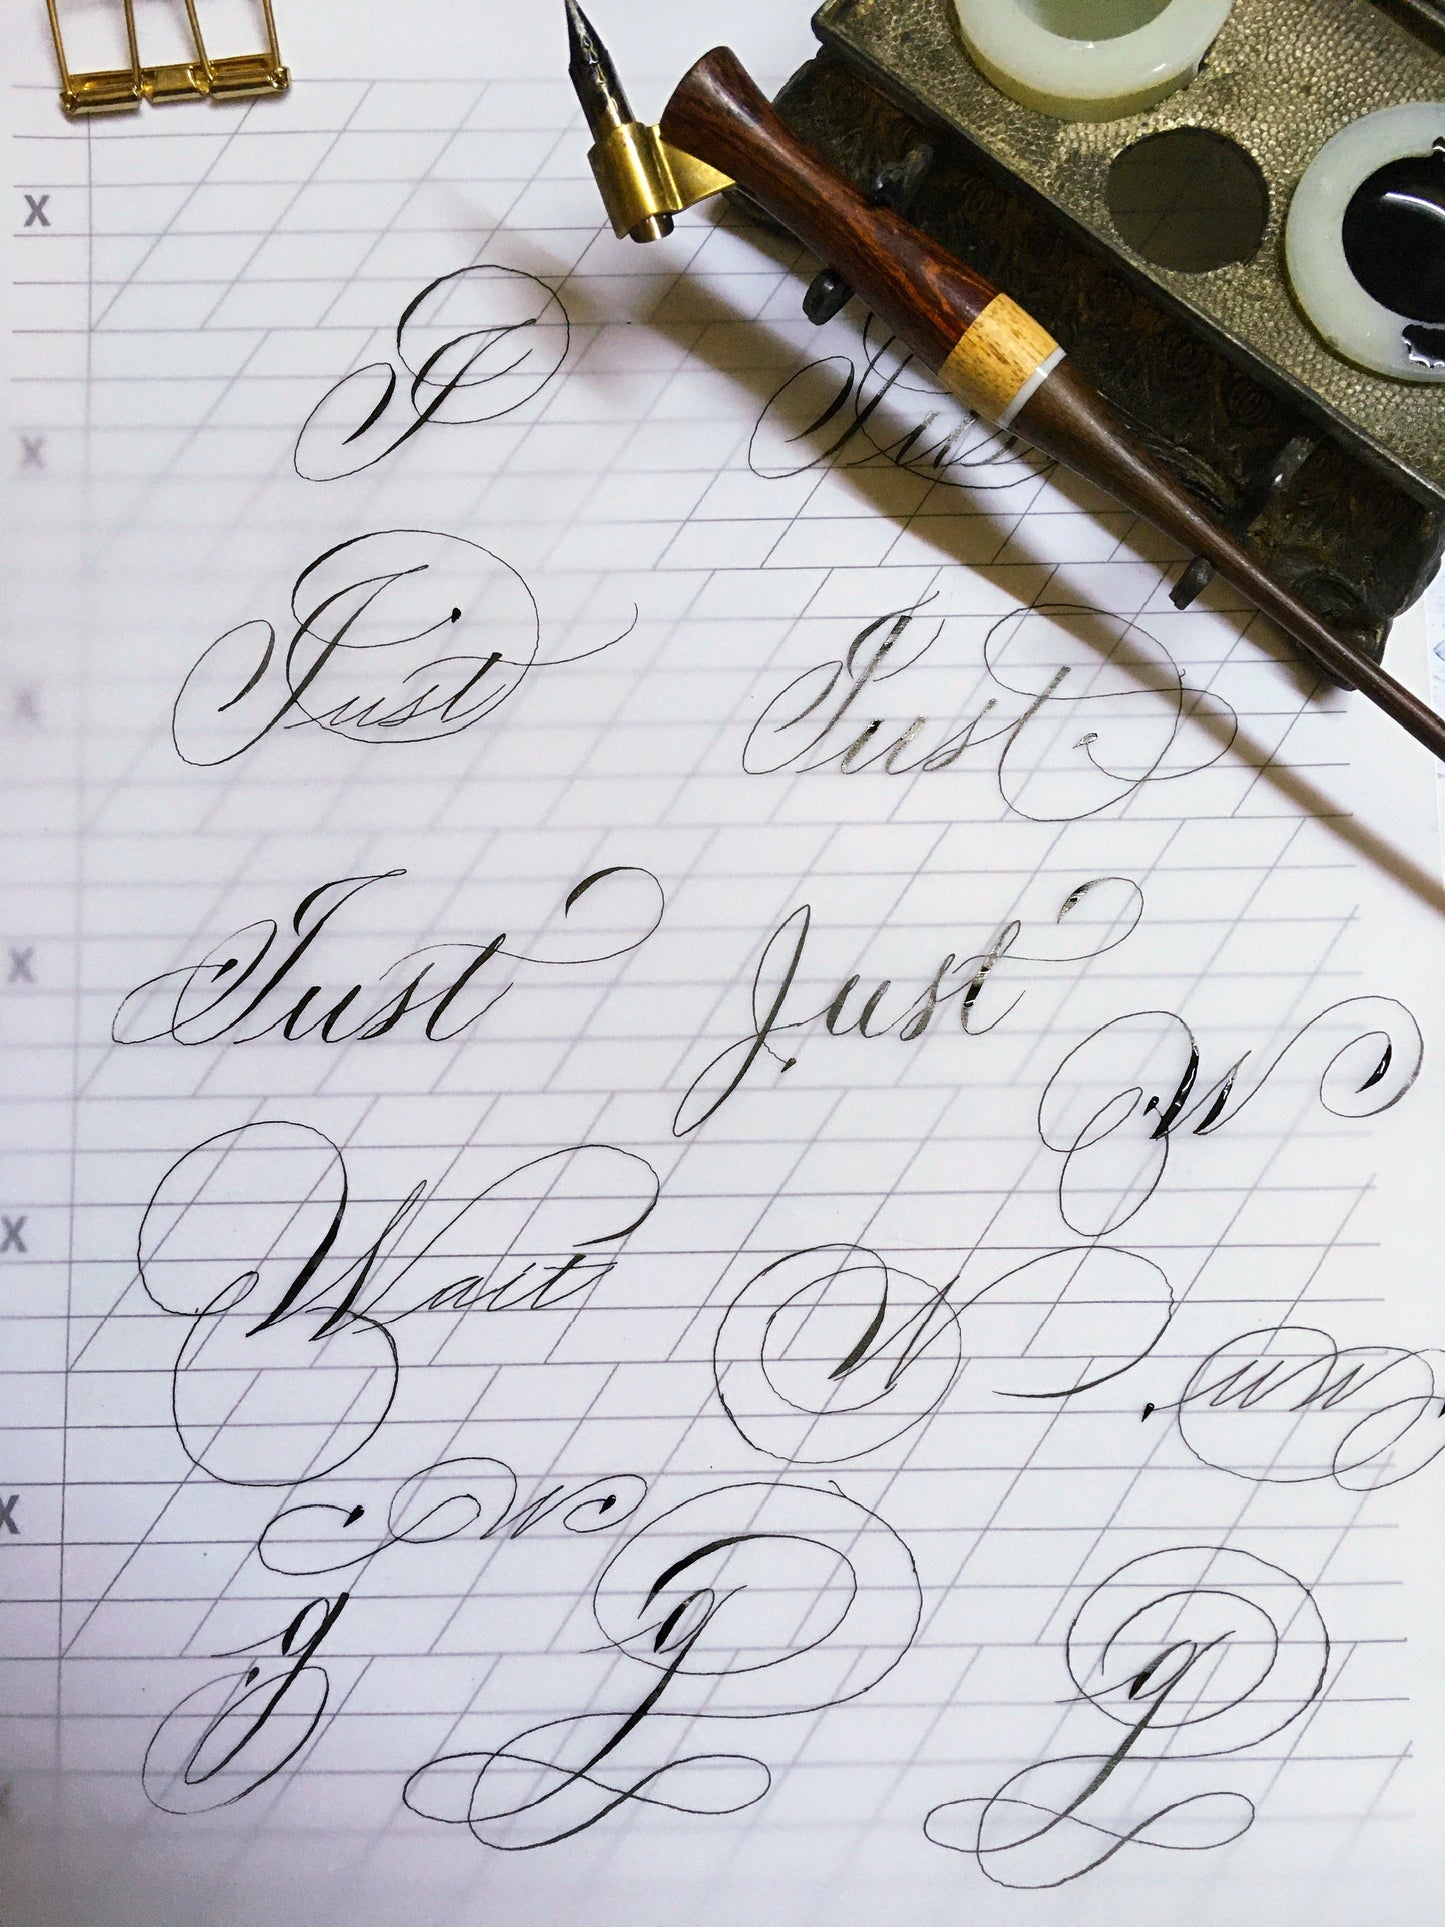 X
J
Just
X
Just
Just
X
Just
Just
X
W
Wait
X
W
w
g
g
g